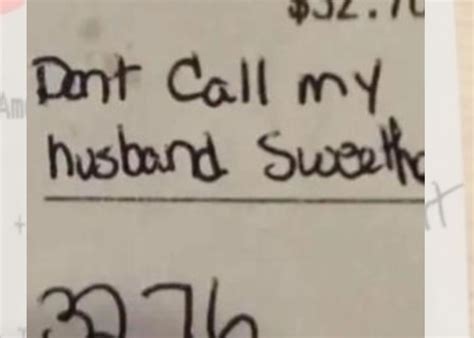 $32.76
Dont Call my
husband Sweeth
3276